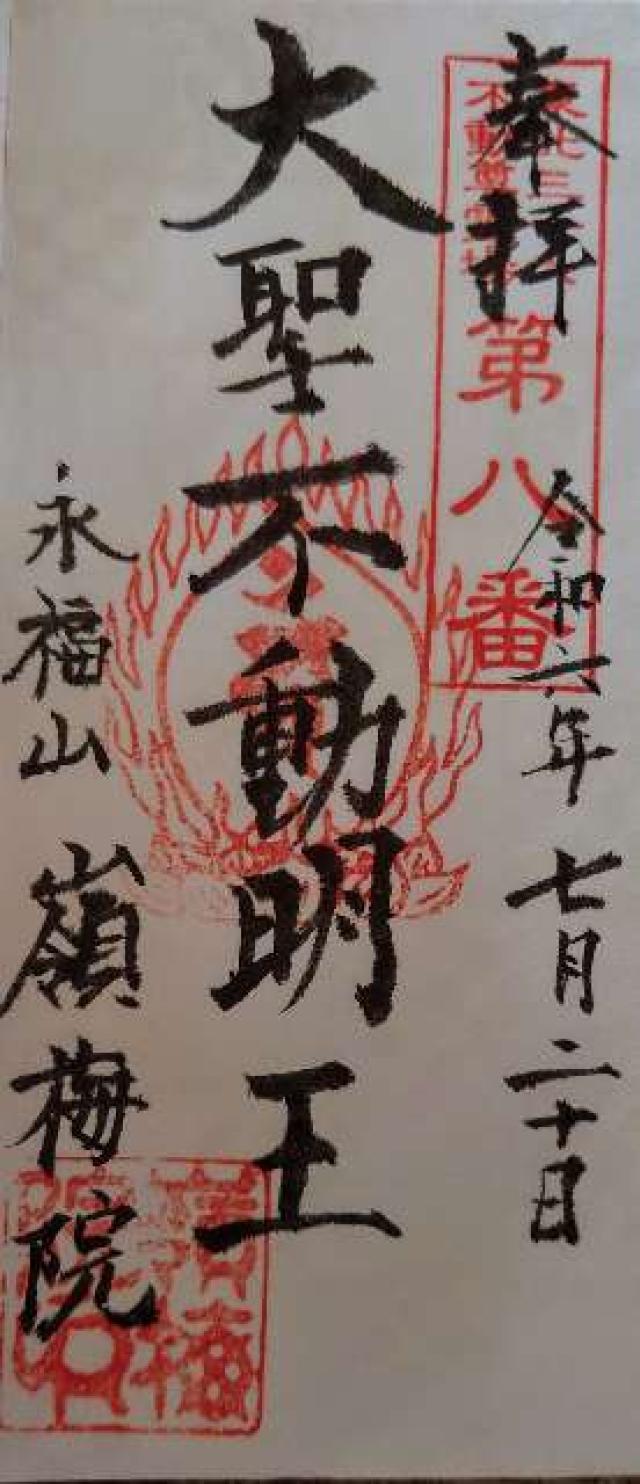 奉拝
第八番
令和六年七月二十日
大聖不動明王
永福山 嶺梅院